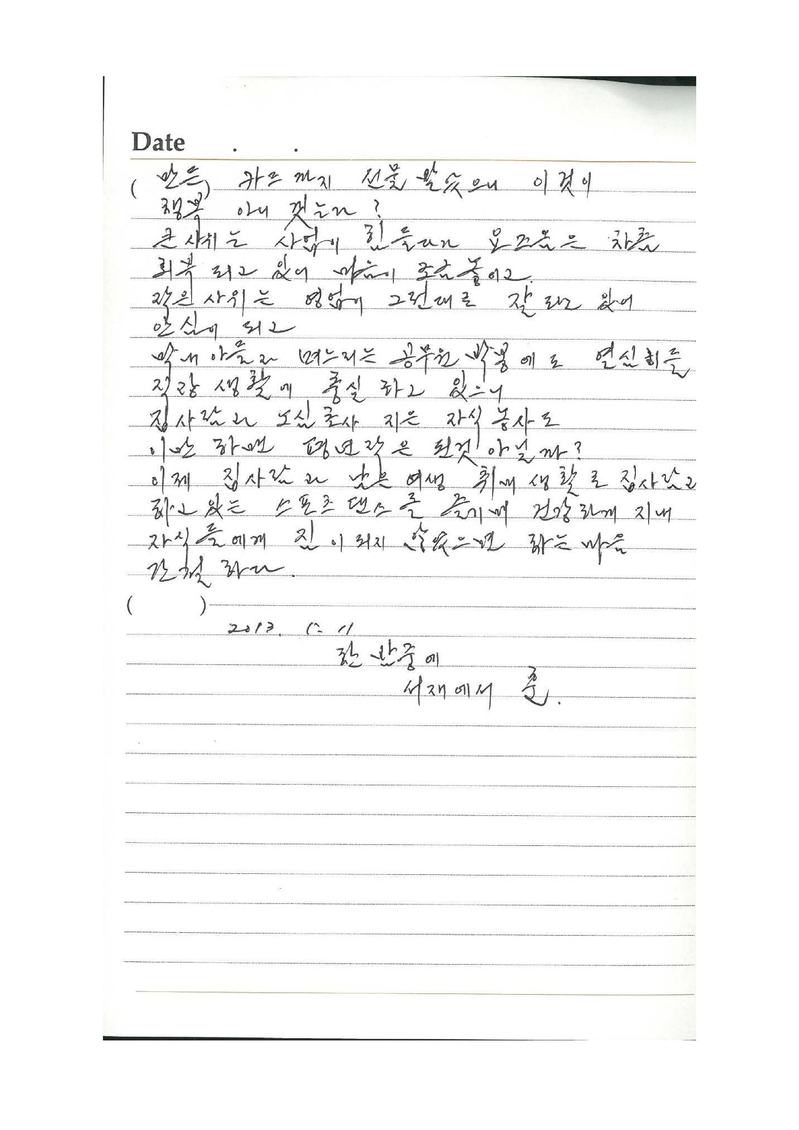 Date . .
( 만든 ) 카드 까지 선물 받았으니 이것이
행복 아니 겟는가?
큰사위는 사업이 힘들다가 요즈음은 차츰
회복 되고 있어 마음이 조금 놓이고.
작은 사위는 영업이 그런대로 잘 되고 있어
안심이 되고
막내 아들과 며느리는 공무원 박봉에도 열심히들
직장 생활에 충실 하고 있으니
집사람과 노심초사 지은 자식 농사도
이만 하면 평년작은 된것 아닐까?
이제 집사람과 남은 여생 취미 생활로 집사람과
하고 있는 스포츠 댄스를 즐기며 건강하게 지내
자식들에게 짐이 되지 않았으면 하는 마음
간절 하다.
( )
2013. 12. 11
한 밤중에
서재에서 준.